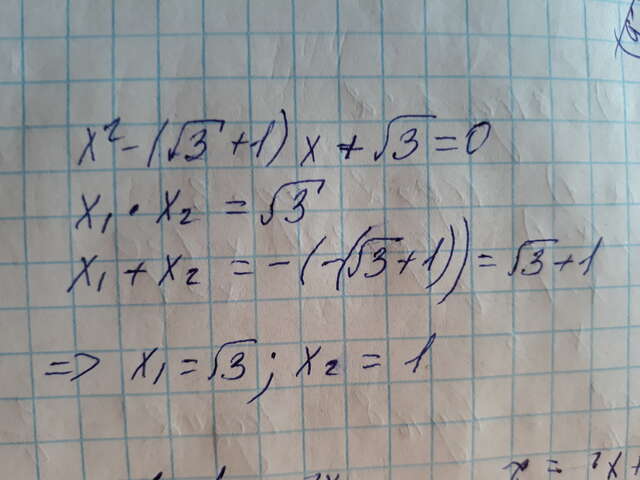 x² - (√3 + 1)x + √3 = 0
x₁ · x₂ = √3
x₁ + x₂ = -(-(√3 + 1)) = √3 + 1
⇒ x₁ = √3; x₂ = 1